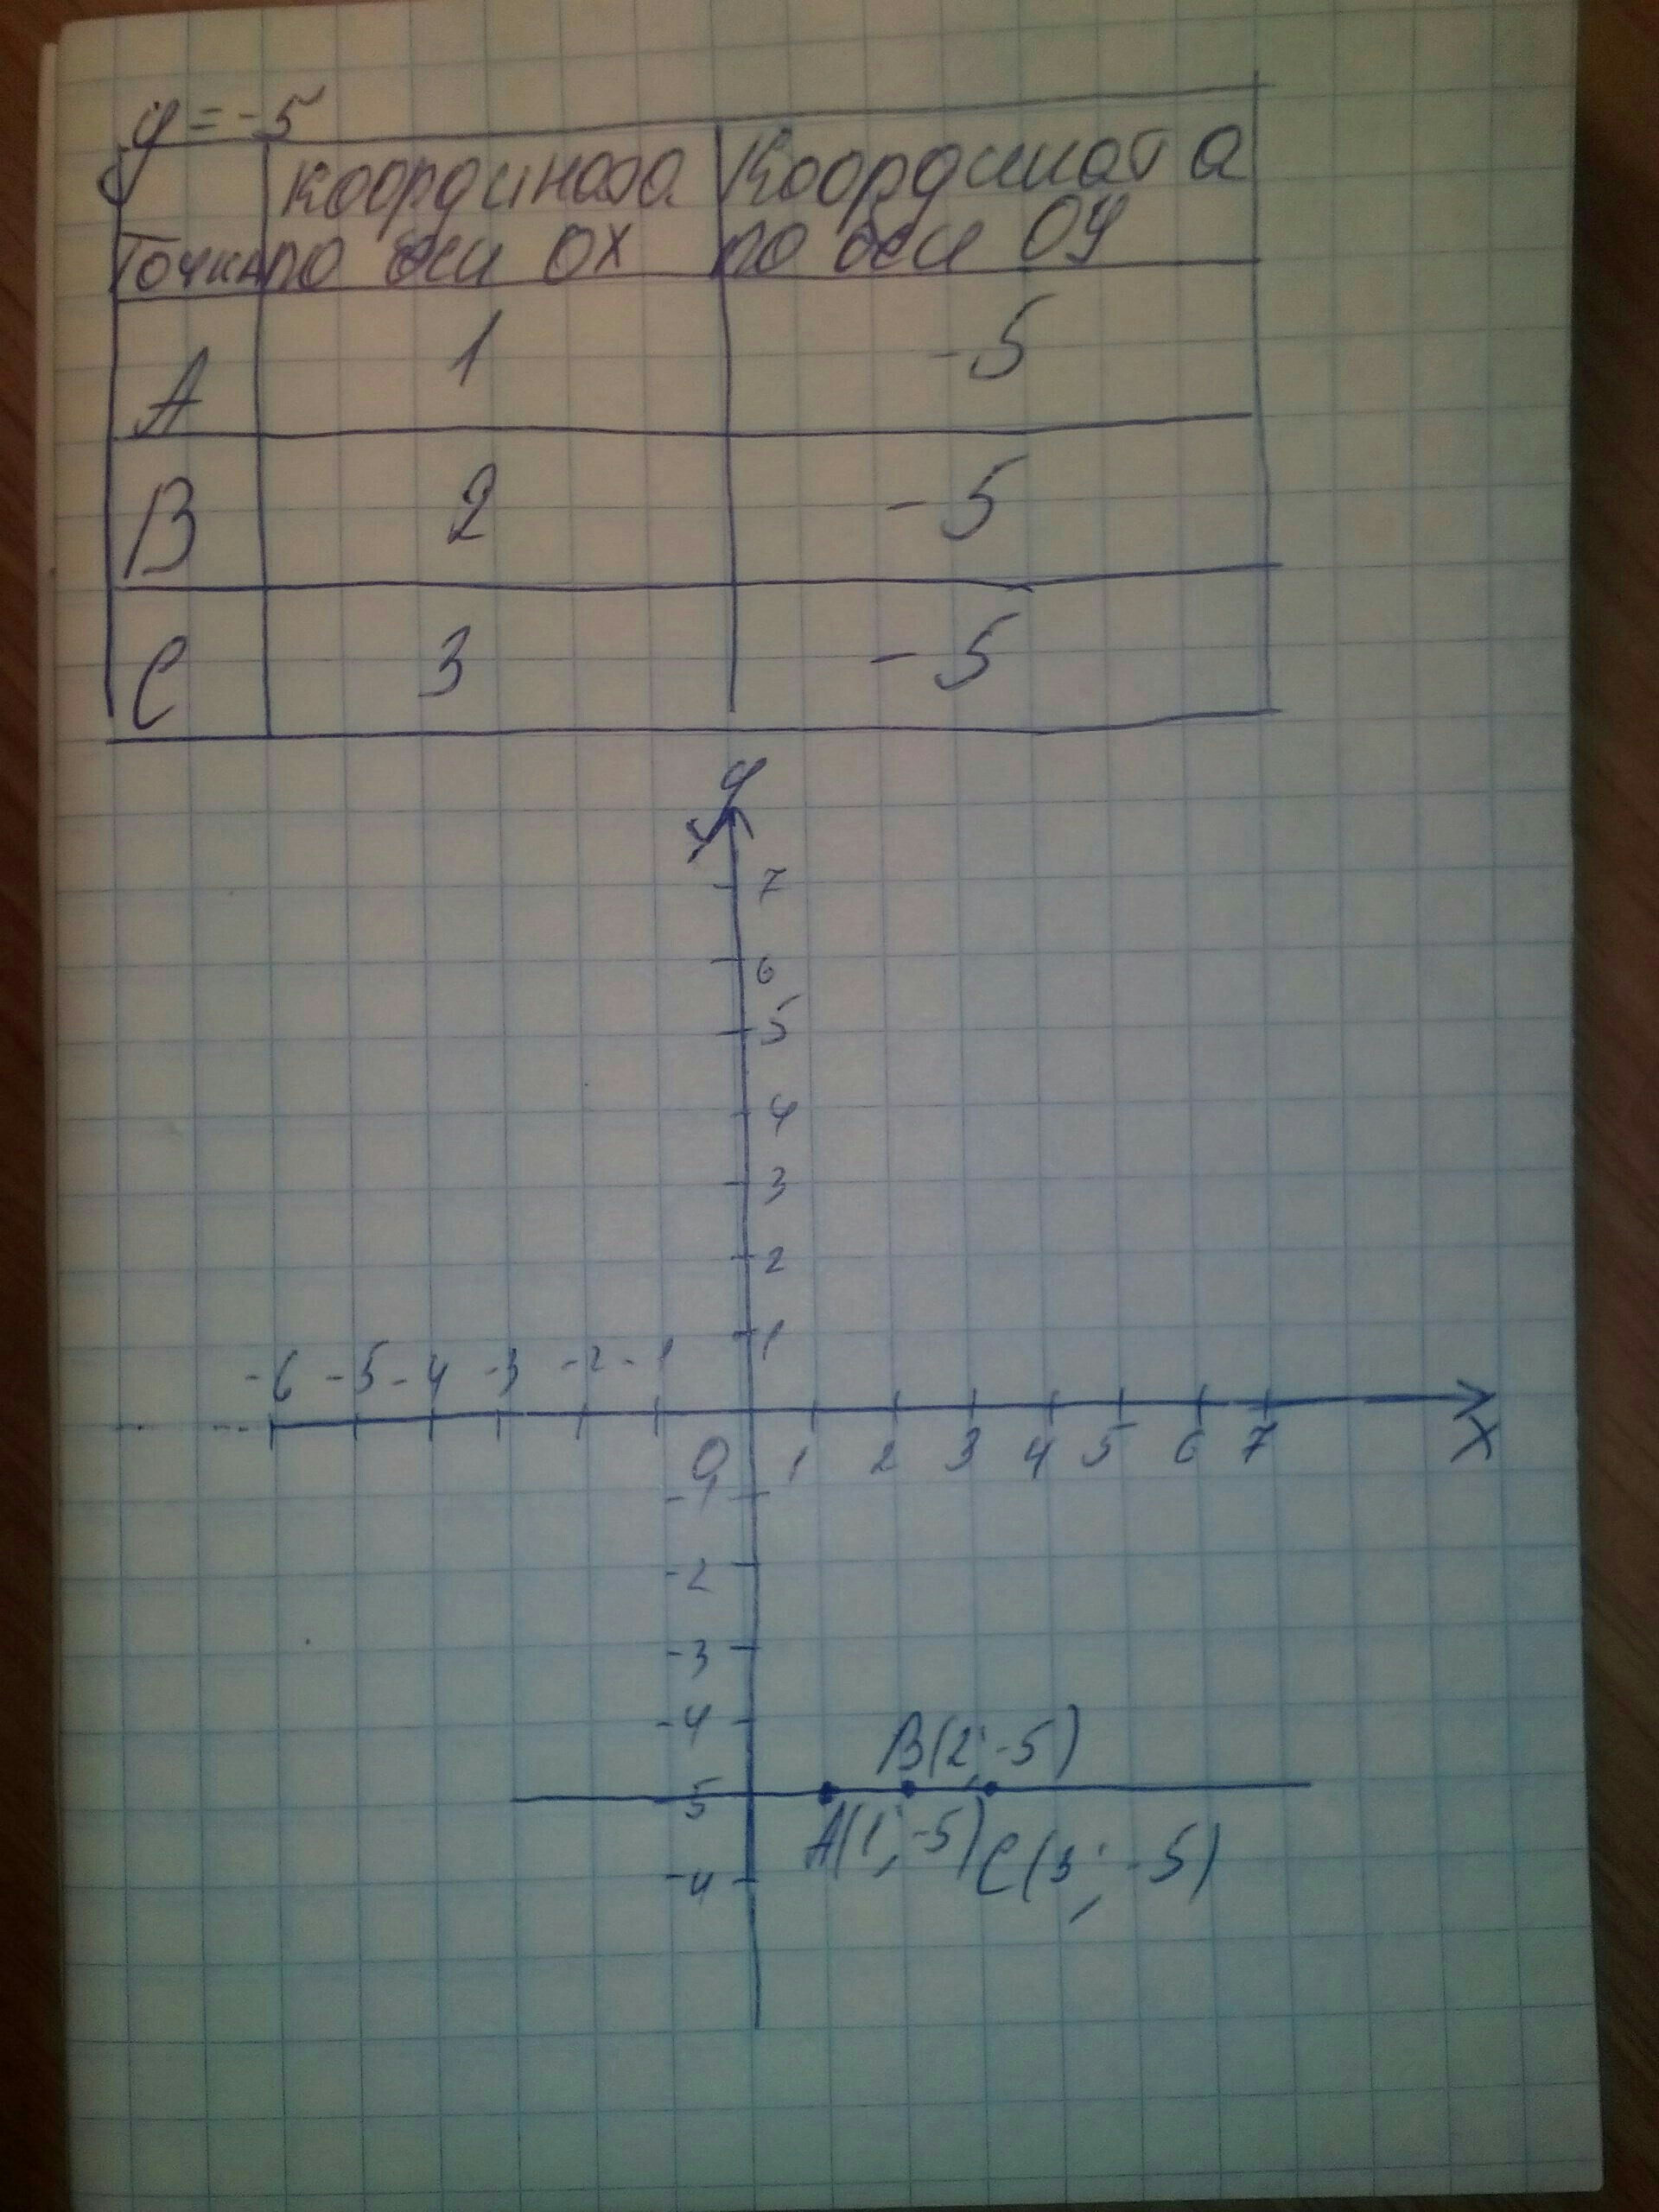 y = -5
Точка
координата
по оси ОХ
Координата
по оси ОУ
А 1 -5
В 2 -5
С 3 -5
y
7
6
5
4
3
2
1
-6 -5 -4 -3 -2 -1
0 1 2 3 4 5 6 7 x
-1
-2
-3
-4
В(2; -5)
-5
А(1; -5) С(3; -5)
-4